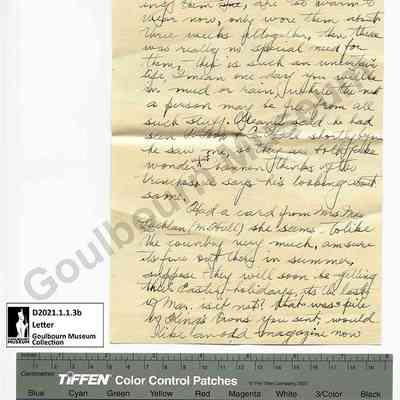 them, are too warm to
wear now, only wore them about
three weeks altogether, then there
was really no special need for
them, this is such an uncertain
life, I mean one day you will be
in mud or rain, while the next
a person may be free from all
such stuff. said he had
seen shortly before
he saw me, so they are both
wonder what thinks of the
trenches, he says he's looking about
same.
Had a card from Mrs Mac
Lachlan she seems to like
the country very much, am sure
its fine out there in summer,
suppose they will soon be getting
their Easter holidays, its the last
of Mar. is it not? that was quite
of things you sent, would
like an odd magazine now
Goulbourn Museum
D2021.1.1.3b
Letter
Goulbourn Museum
Collection
Centimetres
TIFFEN Color Control Patches
© The Tiffen Company, 2007
Blue Cyan Green Yellow Red Magenta White 3/Color Black